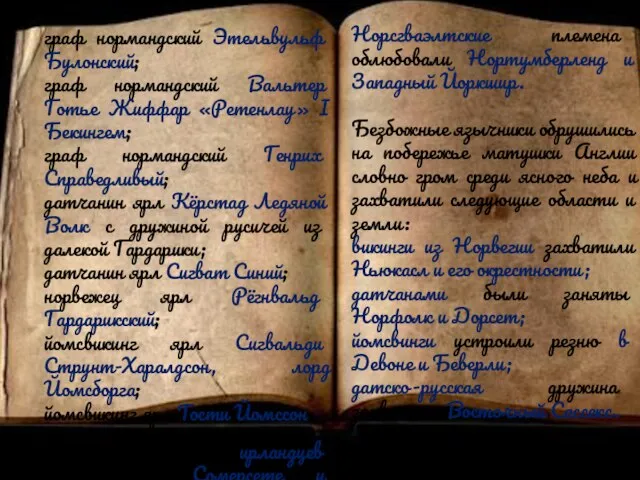 граф нормандский Этельвульф
Булонский;
граф нормандский Вальтер
Готье Жиффар «Ретенлау» I
Бекингем;
граф нормандский Генрих
Справедливый;
датчанин ярл Кёрстад Ледяной
Волк с дружиной русичей из
далекой Гардарики;
датчанин ярл Сигват Синий;
норвежец ярл Рёгнвальд
Гардарикский;
йомсвикинг ярл Сигвальди
Струнт-Харалдсон, лорд
Йомсборга;
йомсвикинг ярл Тости Йомссон
ирландцев
Сомерсете и
Норсгваэлтские племена
облюбовали Нортумберленд и
Западный Йоркшир.
Безбожные язычники обрушились
на побережье матушки Англии
словно гром среди ясного неба и
захватили следующие области и
земли:
викинги из Норвегии захватили
Ньюкасл и его окрестности;
датчанами были заняты
Норфолк и Дорсет;
йомсвинги устроили резню в
Девоне и Беверли;
датско-русская дружина
Восточный Сассекс.